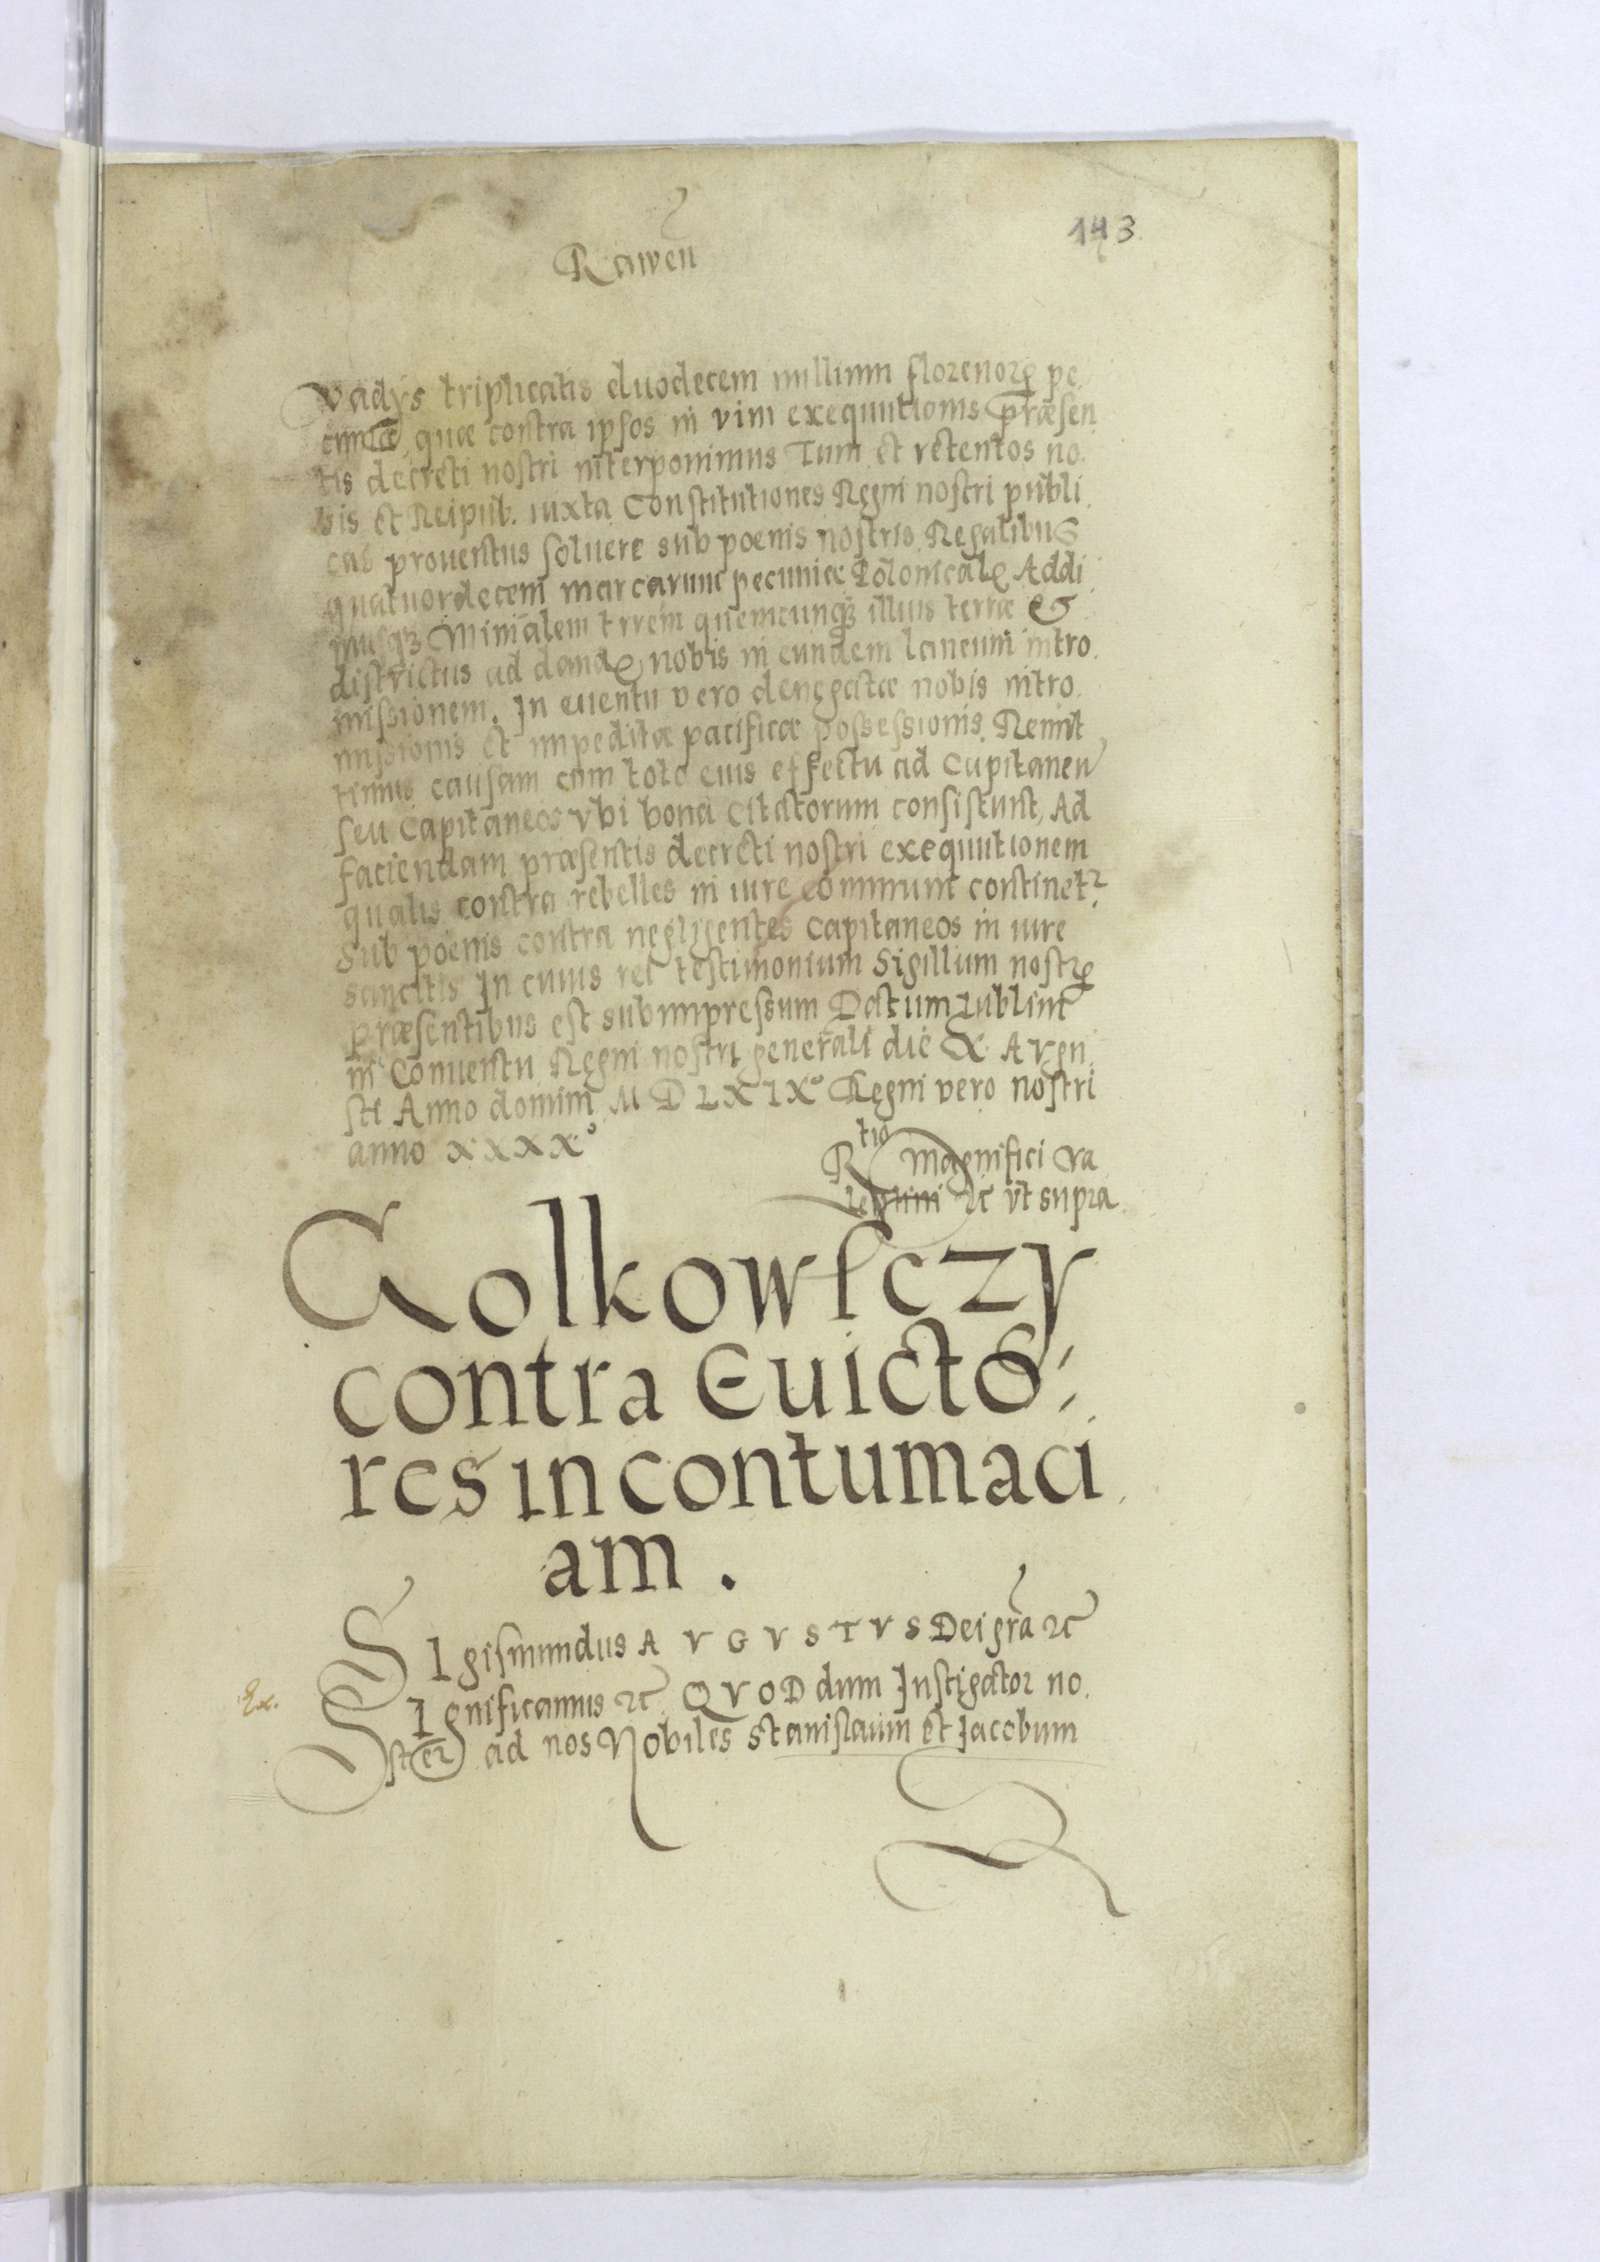 143
Rawen
Vadys triplicatis duodecem millium florenorꝝ pe
cuniæ, quæ contra ipsos in vim exequutionis præsen
tis decreti nostri interponimus Tum et retentos no
bis et Reipub. iuxta Constitutiones Regni nostri publi
cas prouentus soluere sub poenis nostris Regalibus
quatuordecem marcarum pecuniæ Polonicalꝭ Addi
musqꝫ Mīnīalem trrēm quemcunqꝫ illius terræ et
districtus ad dandꝭ nobis in eundem laneum intro
missionem. In euentu vero denegatæ nobis intro
missionis et impeditæ pacificæ possessionis. Remit
timus causam cum toto eius effectu ad Capitaneu
seu Capitaneos vbi bona Citatorum consistunt, Ad
faciendam præsentis decreti nostri exequutionem
qualis contra rebelles in iure communi continetr
sub poenis contra negligentes Capitaneos in iure
sancitis In cuius rei testimonium Sigillum nostrꝝ
præsentibus est subimpressum Datum Lublini
in Conuentu Regni nostri generali die X Augu
sti Anno domini M D L X I X° Regni vero nostri
anno X X X X°
Rtio Magnifici Va
ut supra
Golkowsczy
contra Euicto
res in contumaci
am.
SIgismundus A V G V S T V S Dei gra ꝛc
Ex. SIgnificamus ꝛc QVOD dum Instigator no
ster ad nos Nobiles Stanislaum et Jacobum